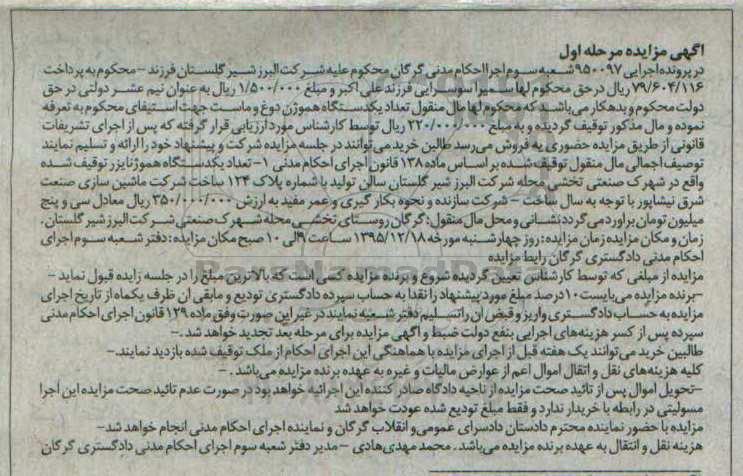 آگهی مزایده مرحله اول
در پرونده اجرایی ۹۵۰۰۹۷ شعبه سوم اجرا احکام مدنی گرگان محکوم علیه شرکت البرز شیر گلستان فرزند – محکوم به پرداخت
۷۹/۶۰۴/۱۱۶ ریال در حق محکوم لها سمیرا سوسرایی فرزند علی اکبر و مبلغ ۱/۵۰۰/۰۰۰ ریال به عنوان نیم عشر دولتی در حق
دولت محکوم و بدهکار می باشد که محکوم لها مال منقول تعداد یکدستگاه هموژن دوغ و ماست جهت استیفای محکوم به تعرفه
نموده و مال مذکور توقیف گردیده و به مبلغ ۲۲۰/۰۰۰/۰۰۰ ریال توسط کارشناس مورد ارزیابی قرار گرفته که پس از اجرای تشریفات
قانونی از طریق مزایده حضوری به فروش می رسد طالبن خرید می توانند در جلسه مزایده شرکت و پیشنهاد خود را ارائه و تسلیم نمایند
توصیف اجمالی مال منقول توقیف شده بر اساس ماده ۱۳۸ قانون اجرای احکام مدنی ۱- تعداد یکدستگاه هموژنایزر توقیف شده
واقع در شهرک صنعتی نخشی محله شرکت البرز شیر گلستان سالن تولید با شماره پلاک ۱۲۴ ساخت شرکت ماشین سازی صنعت
شرق نیشابور با توجه به سال ساخت – شرکت سازنده و نحوه بکار گیری و عمر مفید به ارزش ۳۵۰/۰۰۰/۰۰۰ ریال معادل سی و پنج
میلیون تومان براورد می گردد نشانی و محل مال منقول: گرگان روستای نخشی محله شهرک صنعتی شرکت البرز شیر گلستان.
زمان و مکان مزایده زمان مزایده: روز چهارشنبه مورخه ۱۳۹۵/۱۲/۱۸ ساعت ۹ الی ۱۰ صبح مکان مزایده: دفتر شعبه سوم اجرای
احکام مدنی دادگستری گرگان رایط مزایده
مزایده از مبلغی که توسط کارشناس تعیین گردیده شروع و برنده مزایده کسی است که بالاترین مبلغ را در جلسه زایده قبول نماید –
-برنده مزایده می بایست ۱۰ درصد مبلغ مورد پیشنهاد را نقدا به حساب سپرده دادگستری تودیع و مابقی ان ظرف یکماه از تاریخ اجرای
مزایده به حساب دادگستری واریز و قبض ان را تسلیم دفتر شعبه نمایند در غیر این صورت وفق ماده ۱۲۹ قانون اجرای احکام مدنی
سپرده پس از کسر هزینه های اجرایی بنفع دولت ضبط و آگهی مزایده برای مرحله بعد تجدید خواهد شد .-
طالبین خرید می توانند یک هفته قبل از اجرای مزایده با هماهنگی این اجرای احکام از ملک توقیف شده بازدید نمایند.-
کلیه هزینه های نقل و انتقال اموال اعم از عوارض مالیات و غیره به عهده برنده مزایده می باشد. –
-تحویل اموال پس از تائید صحت مزایده از ناحیه دادگاه صادر کننده این اجرائیه خواهد بود در صورت عدم تائید صحت مزایده این اجرا
مسولیتی در رابطه با خریدار ندارد و فقط مبلغ تودیع شده عودت خواهد شد
مزایده با حضور نماینده محترم دادستان دادسرای عمومی و انقلاب گرگان و نماینده اجرای احکام مدنی انجام خواهد شد-
هزینه نقل و انتقال به عهده برنده مزایده می باشد. محمد مهدی هادی – مدیر دفتر شعبه سوم اجرای احکام مدنی دادگستری گرگان